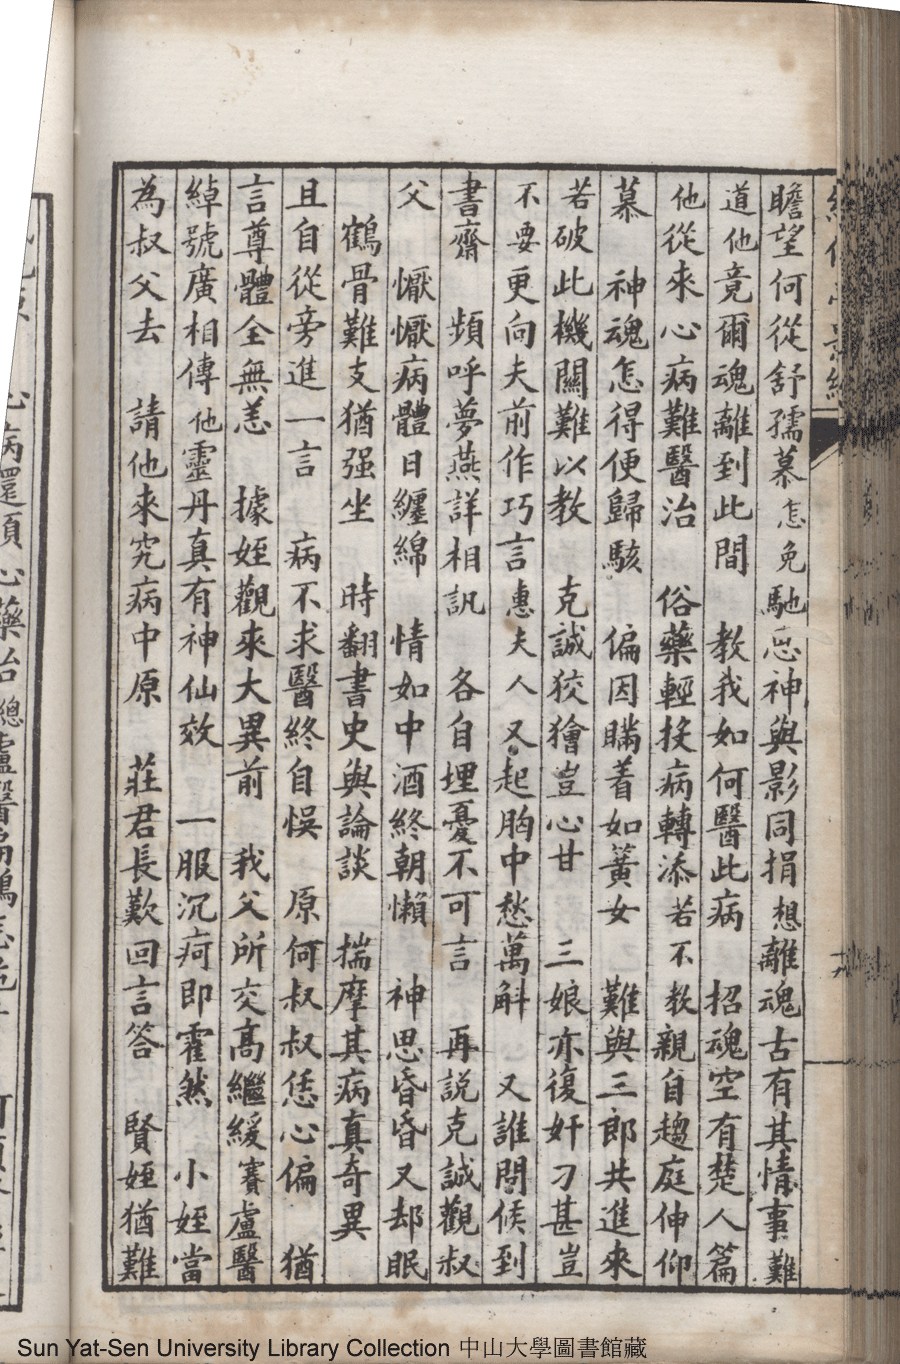 瞻望何從舒孺慕怎免馳思神與影同捐想離魂古有其情事難
道他竟爾魂離到此間　教我如何醫此病　招魂空有楚人篇
他從來心病難醫治　俗藥輕投病轉添若不教親自趨庭伸仰
慕　神魂怎得便歸駭　偏因瞞着如簧女　難與三郎共進來
若破此機關難以教　克誠狡獪豈心甘　三娘亦復奸刁甚豈
不要更向夫前作巧言惠夫人又起胸中愁萬斛　又誰問候到
書齋　頻呼夢燕詳相訊　各自埋憂不可言　再說克誠觀叔
父　懨懨病體日纏綿　情如中酒終朝懶　神思昏昏又却眠
鶴骨難支猶强坐　時翻書史與論談　揣摩其病真奇異
且自從旁進一言　病不求醫終自悞　原何叔叔恁心偏　猶
言尊體全無恙　據姪觀來大異前　我父所交高繼緩賽盧醫
綽號廣相傳他靈丹真有神仙效　一服沉疴即霍然　小姪當
為叔父去　請他來究病中原　莊君長歎回言答　賢姪猶難
心病還須心藥治總盧醫扁鵲
Sun Yat-Sen University Library Collection 中山大學圖書館藏